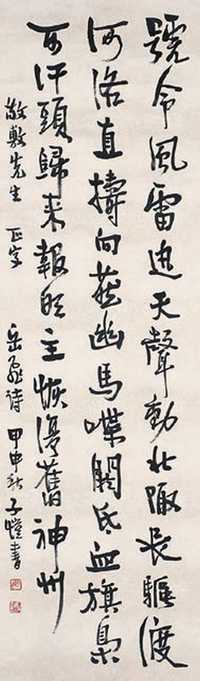 號令風雷迅天聲動北陬長驅渡
河洛直擣向燕幽馬蹀閼氏血旗梟
可汗頭歸來報明主恢復舊神州
敬敷先生 正字 岳飛詩 甲申秋 子愷書